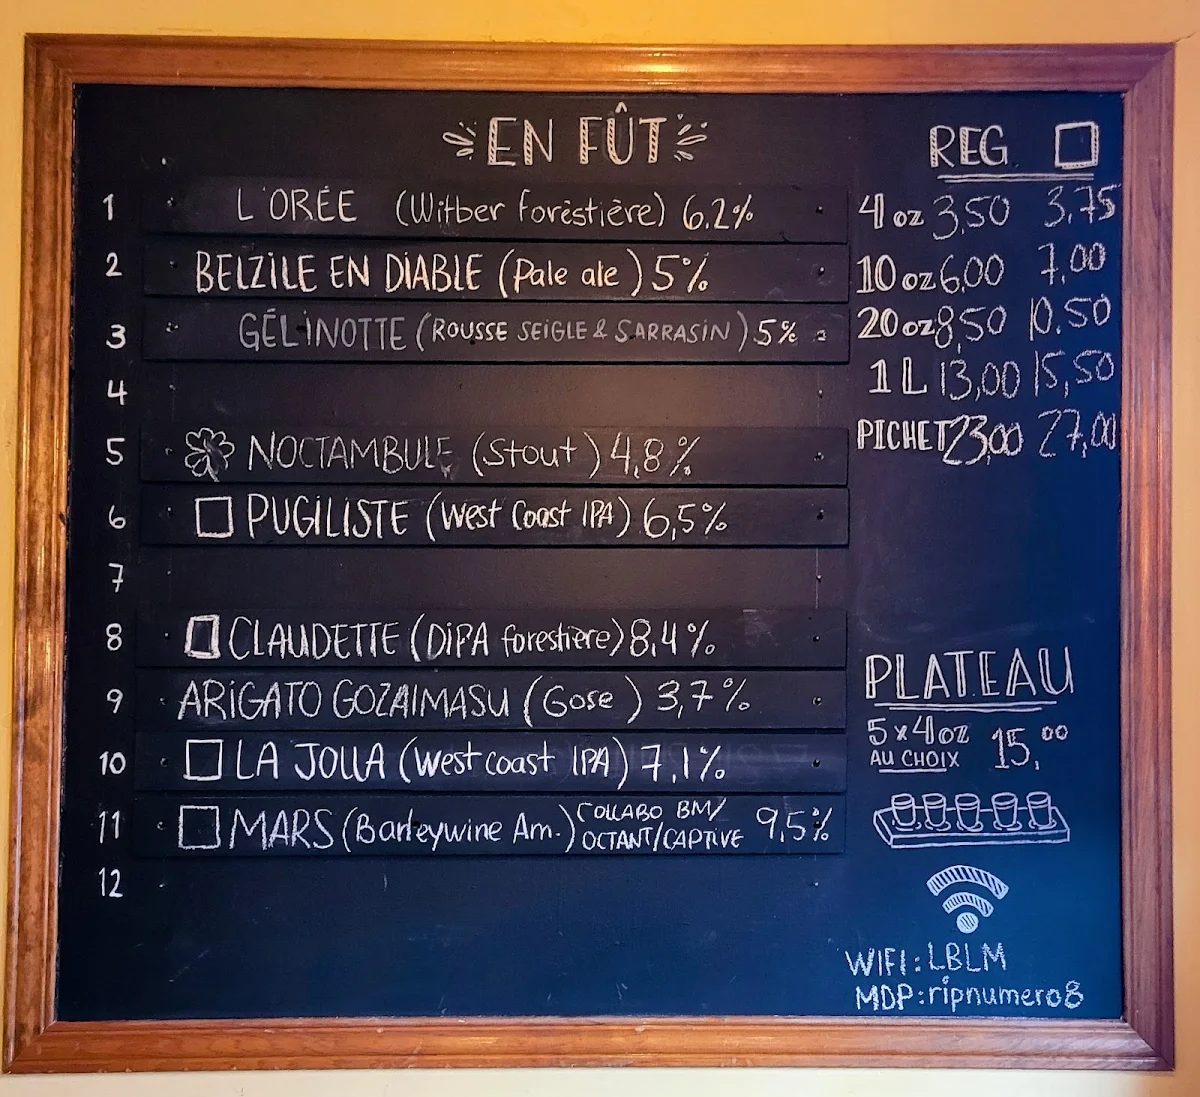 EN FÛT
1 L'ORÉE (Witber forèstière) 6.2%
2 BELZILE EN DIABLE (pale ale) 5%
3 GÉLINOTTE (ROUSSE SEIGLE & SARRASIN) 5%
4
5 NOCTAMBULE (Stout) 4,8%
6 PUGILISTE (West Coast IPA) 6,5%
7
8 CLAUDETTE (DIPA forestière) 8,4%
9 ARIGATO GOZAIMASU (Gose) 3,7%
10 LA JOLLA (West coast IPA) 7,1%
11 MARS (Barleywine Am.) COLLABO BM/
OCTANT/CAPTIVE 9,5%
12
REG
4 oz 3,50 3,75
10 oz 6,00 7,00
20 oz 8,50 10.50
1 L 13,00 15,50
PICHET 23,00 27,00
PLATEAU
5 x 4 oz 15,00
AU CHOIX
WIFI: LBLM
MDP: ripnumero8